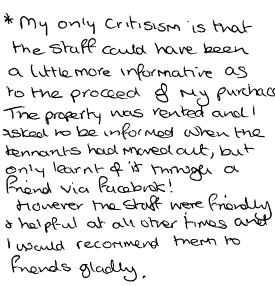 * My only Critisism is that
the staff could have been
a little more informative as
to the proceed of my purchas
The property was rented and I
asked to be informed when the
tennants had moved out, but
only learnt of it through a
friend via Facebook!
However the staff were friendly
& helpful at all other times and
I would recommend them to
friends gladly.